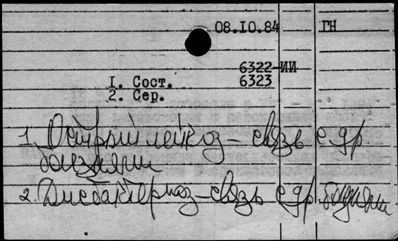 08.10.84 ГН
6322-ИИ
1. Сост. 6323
2. Сер.
1. Острый лейкоз – связь с др.
болезнями
2. Дисбактериоз – связь с др. болезнями